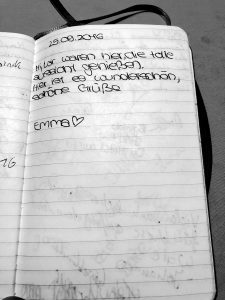 29.09.2016
Wir waren hier, die tolle
Aussicht genießen.
Hier ist es wunderschön,
schöne Grüße
Emma♡
16